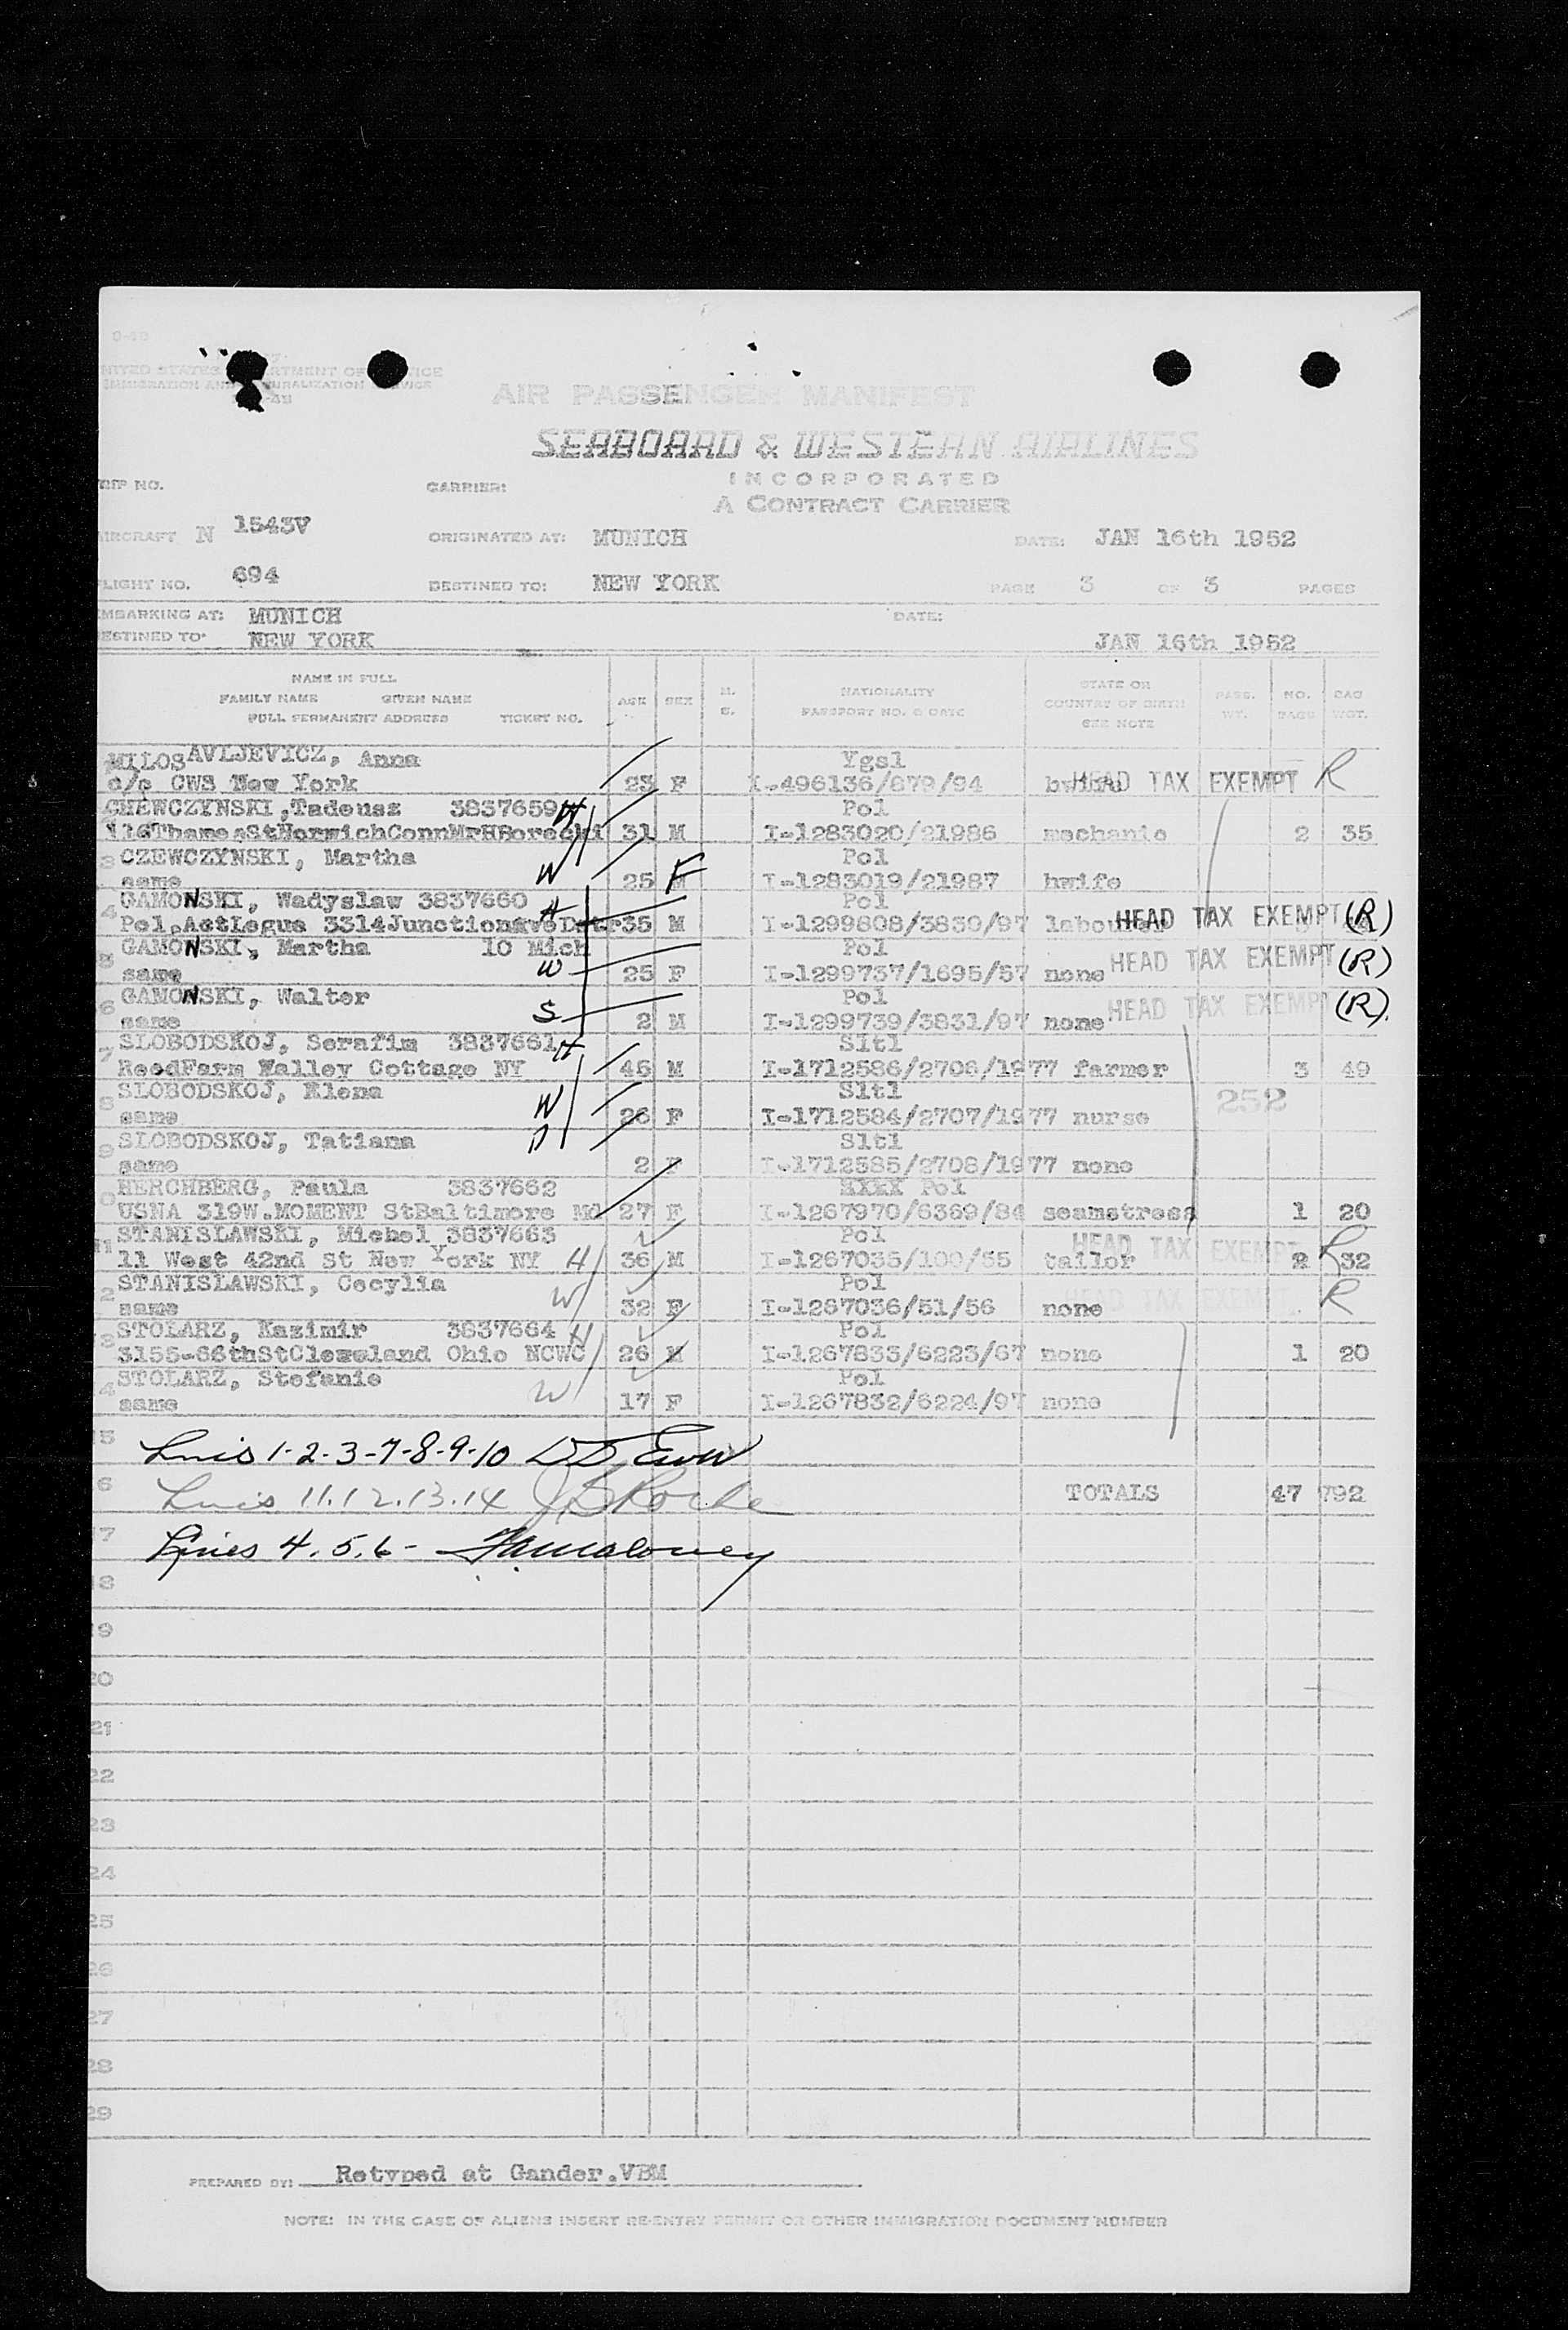 UNITED STATES DEPARTMENT OF JUSTICE
IMMIGRATION AND NATURALIZATION SERVICE
AIR PASSENGER MANIFEST
SEABOARD & WESTERN AIRLINES
INCORPORATED
A CONTRACT CARRIER
TRIP NO. CARRIER:
AIRCRAFT N 1543V ORIGINATED AT: MUNICH DATE: JAN 16th 1952
FLIGHT NO. 694 DESTINED TO: NEW YORK PAGE 3 OF 3 PAGES
EMBARKING AT: MUNICH DATE:
DESTINED TO: NEW YORK JAN 16th 1952
NAME IN FULL
FAMILY NAME GIVEN NAME
FULL PERMANENT ADDRESS TICKET NO.
AGE SEX M. S.
NATIONALITY
PASSPORT NO. & DATE
STATE OR
COUNTRY OF BIRTH
SEE NOTE
PASS. WT. NO. BAGS BAG WGT.
MILOSAVLJEVICZ, Anna Ygsl
c/o CWS New York 23 F I-496136/879/94 HEAD TAX EXEMPT R
CHEWCZYNSKI,Tadeusz 3837659 H Pol
116ThamesStNorwichConnMrHBorecki 31 M I-1283020/21986 mechanic 2 35
3 CZEWCZYNSKI, Martha W Pol
same 25 F I-1283019/21987 hwife
4 GAMONSKI, Wadyslaw 3837660 H Pol
Pol.ActLegue 3314JunctionAveDetr 35 M I-1299808/3830/97 labourer HEAD TAX EXEMPT (R)
5 GAMONSKI, Martha 10 Mich Pol
same W 25 F I-1299737/1695/57 none HEAD TAX EXEMPT (R)
6 GAMONSKI, Walter Pol
same S 2 M I-1299739/3831/97 none HEAD TAX EXEMPT (R)
7 SLOBODSKOJ, Serafim 3837661 H Sltl
ReedFarm Walley Cottage NY 45 M I-1712586/2706/1977 farmer 3 49
8 SLOBODSKOJ, Elena W Sltl 252
same 26 F I-1712584/2707/1977 nurse
9 SLOBODSKOJ, Tatiana D Sltl
same 2 F I-1712585/2708/1977 none
0 HERCHBERG, Paula 3837662 XXXX Pol
USNA 319W.MOMENT StBaltimore Md 27 F I-1267970/6369/84 seamstress 1 20
11 STANISLAWSKI, Michel 3837663 Pol HEAD TAX EXEMPT R
11 West 42nd St New York NY H 36 M I-1267035/100/55 tailor 2 32
2 STANISLAWSKI, Cecylia W Pol HEAD TAX EXEMPT R
same 32 F I-1267036/51/56 none
3 STOLARZ, Kazimir 3837664 H Pol
3155-66thStCleveland Ohio NCWC 26 M I-1267833/6223/67 none 1 20
4 STOLARZ, Stefanie W Pol
same 17 F I-1267832/6224/97 none
5 Lines 1-2-3-7-8-9-10
6 Lines 11.12.13.14 TOTALS 47 792
7 Lines 4.5.6-
18
19
20
21
22
23
24
25
26
27
28
29
PREPARED BY: Retyped at Gander.VBM
NOTE: IN THE CASE OF ALIENS INSERT RE-ENTRY PERMIT OR OTHER IMMIGRATION DOCUMENT NUMBER